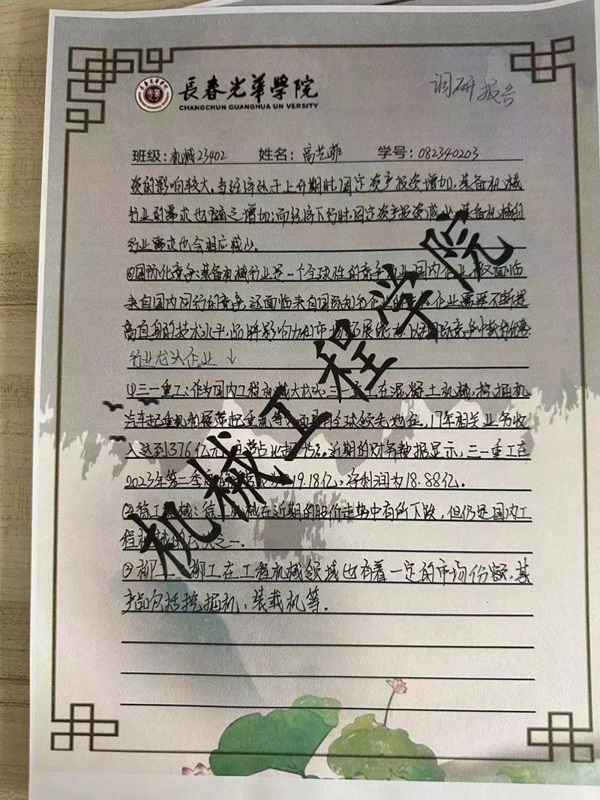 長春光華學院
CHANGCHUN GUANGHUA UNIVERSITY
调研报告
班级:机械23402 姓名: 学号:082340203
资的影响较大,当经济处于上升期时,固定资产投资增加,装备机械
行业的需求也随之增加;而经济下行时,固定资产投资减少,装备机械的
行业需求也会相应减少。
国际化竞争:装备机械行业是一个全球性的竞争行业,国内企业不仅面临
来自国内同行的竞争,还面临来自国际知名企业的竞争,企业需要不断提
高自身的技术水平、品牌影响力和市场拓展能力
行业龙头企业↓
(1)三一重工:作为国内工程机械大龙头,三一重工在混凝土机械、挖掘机
汽车起重机和履带起重机等方面具有全球领先地位,17年相关业务收
入达到376亿元,占比超,近期的财务数据显示,三一重工在
2023年第三季度19.18亿,净利润为18.88亿。
②徐工机械:徐工机械在近期的股价走势中有所下跌,但仍是国内工
程机械的之一.
③柳工:柳工在工程机械领域也有着一定的市场份额,其
产品包括挖掘机、装载机等.
机械工程学院